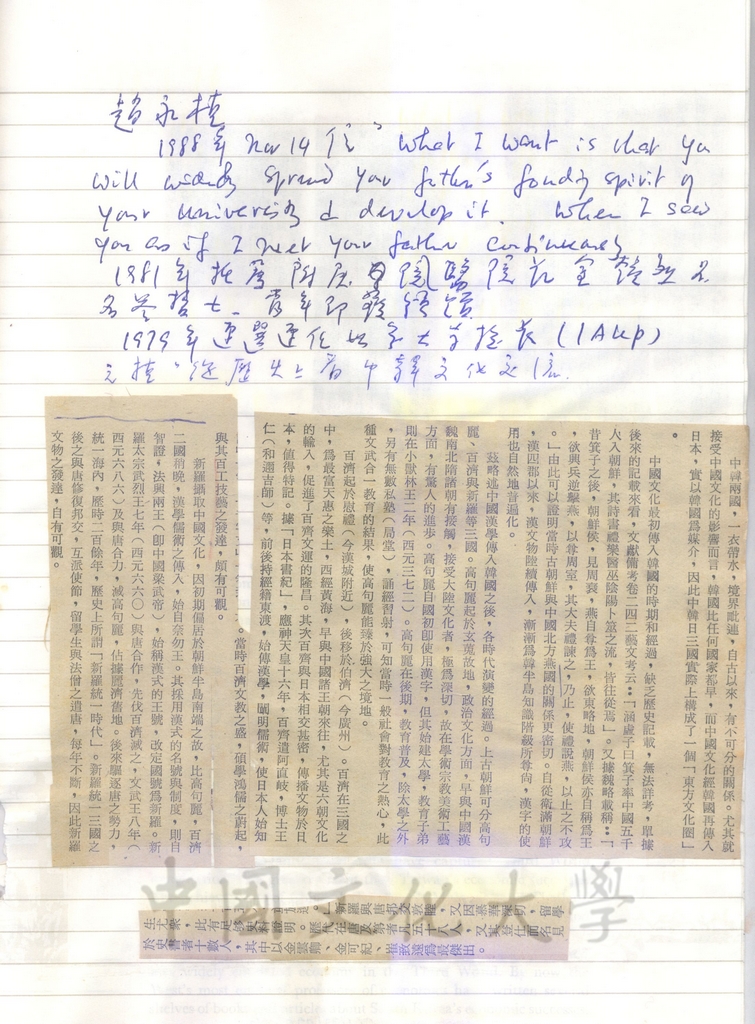 趙永植
1988年 Nov 14 信" What I want is that you
will widely spread your father's founding spirit of
your university & develop it. When I saw
you as if I meet your father continuously
1981年推薦
1979年連選連任 (IAUP)
"從歷史上看中韓文化交流
中韓兩國,一衣帶水,境界毗連,自古以來,有不可分的關係。尤其就
接受中國文化的影響而言,韓國比任何國家都早,而中國文化經韓國再傳入
日本,實以韓國爲媒介,因此中韓日三國實際上構成了一個「東方文化圈」
。
中國文化最初傳入韓國的時期和經過,缺乏歷史記載,無法詳考,單據
後來的記載來看,文獻備考卷二四二藝文考云:「涵虛子曰箕子率中國五千
人入朝鮮,其詩書禮樂醫巫陰陽卜筮之流,皆往從焉」。又據魏略載稱:「
昔箕子之後,朝鮮侯,見周衰,燕自尊爲王,欲東略地,朝鮮侯亦自稱爲王
,欲興兵逆擊燕,以尊周室,其大夫禮諫之,乃止,使禮說燕,以止之不攻
。」由此可以證明當時古朝鮮與中國北方燕國的關係更密切。自從衛滿朝鮮
,漢四郡以來,漢文物陸續傳入,漸漸爲韓半島知識階級所尊尚,漢字的使
用也自然地普遍化。
茲略述中國漢學傳入韓國之後,各時代演變的經過。上古朝鮮可分高句
麗、百濟與新羅等三國。高句麗起於玄菟故地,政治文化方面,早與中國漢
魏南北隋諸朝有接觸,接受大陸文化者,極爲深切,故在學術宗教美術工藝
方面,有驚人的進步。高句麗自國初即使用漢字,但其始建太學,教育子弟
則在小獸林王二年(西元三七二)。高句麗在後期,教育普及,除太學之外
,另有無數私塾(局堂),誦經習射,可知當時一般社會對教育之熱心,此
種文武合一教育的結果,使高句麗能臻於強大之境地。
百濟起於慰禮(今漢城附近),後移於伯濟(今廣州)。百濟在三國之
中,爲最富天惠之樂土,西經黃海,早與中國諸王朝來往,尤其是六朝文化
的輸入,促進了百濟文運的隆昌。其次百濟與日本相交甚密,傳播文物於日
本,値得特記。據「日本書紀」,應神天皇十六年,百齊遣阿直岐,博士王
仁(和邇吉師)等,前後持經籍東渡,始傳漢學,闡明儒術,使日本人始知
。當時百濟文教之盛,碩學鴻儒之蔚起,
與其百工技藝之發達,頗有可觀。
新羅攝取中國文化,因初期偏居於朝鮮半島南端之故,比高句麗,百濟
二國稍晚,漢學儒術之傳入,始自奈勿王。其採用漢式的名號與制度,則自
智證,法興兩王(即中國梁武帝),始稱漢式的王號,改定國號爲新羅。新
羅太宗武烈王七年(西元六六〇)與唐合作,先伐百濟滅之,文武王八年(
西元六八六)及與唐合力,滅高句麗,佔據麗濟舊地。後來驅逐唐之勢力,
統一海內,歷時二百餘年,歷史上所謂「新羅統一時代」。新羅統一三國之
後之與唐修復邦交,互派使節,留學生與法僧之遣唐,每年不斷,因此新羅
文物之發達,自有可觀。
新羅與唐邦交敦睦,又因慕華深切,留學
於史書者十數人,其中以金雲卿、金可紀、崔致遠爲最傑出。
中國文化大學